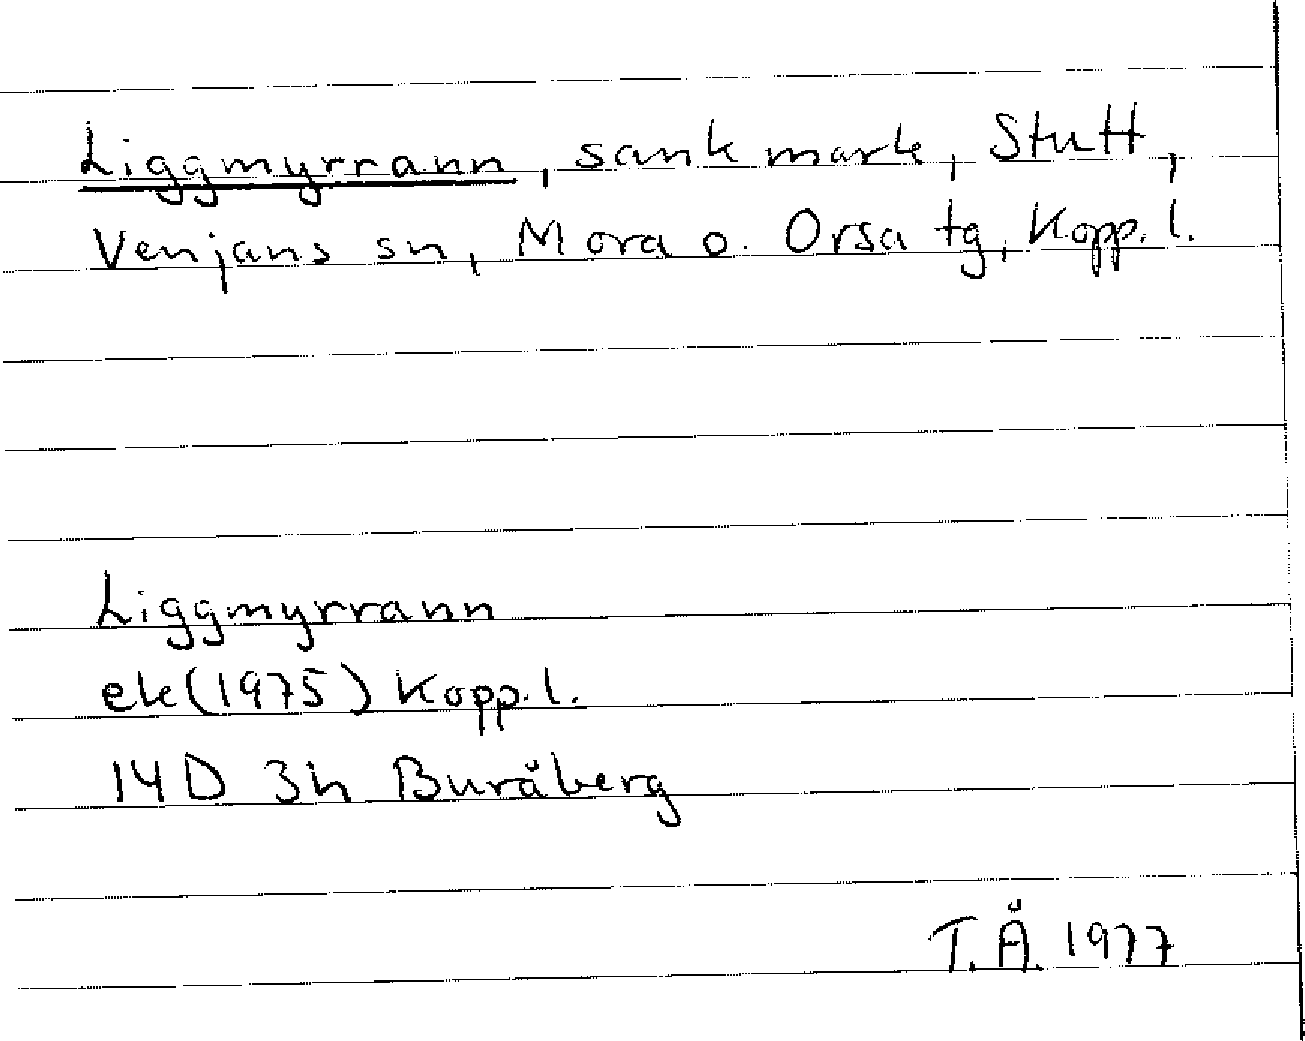 Liggmyrrann, sank mark, Stutt,
Venjans sn, Mora o. Orsa tg, Kopp. l.
Liggmyrrann
ek (1975) Kopp. l.
14D 3h Buråberg
T.Å. 1977